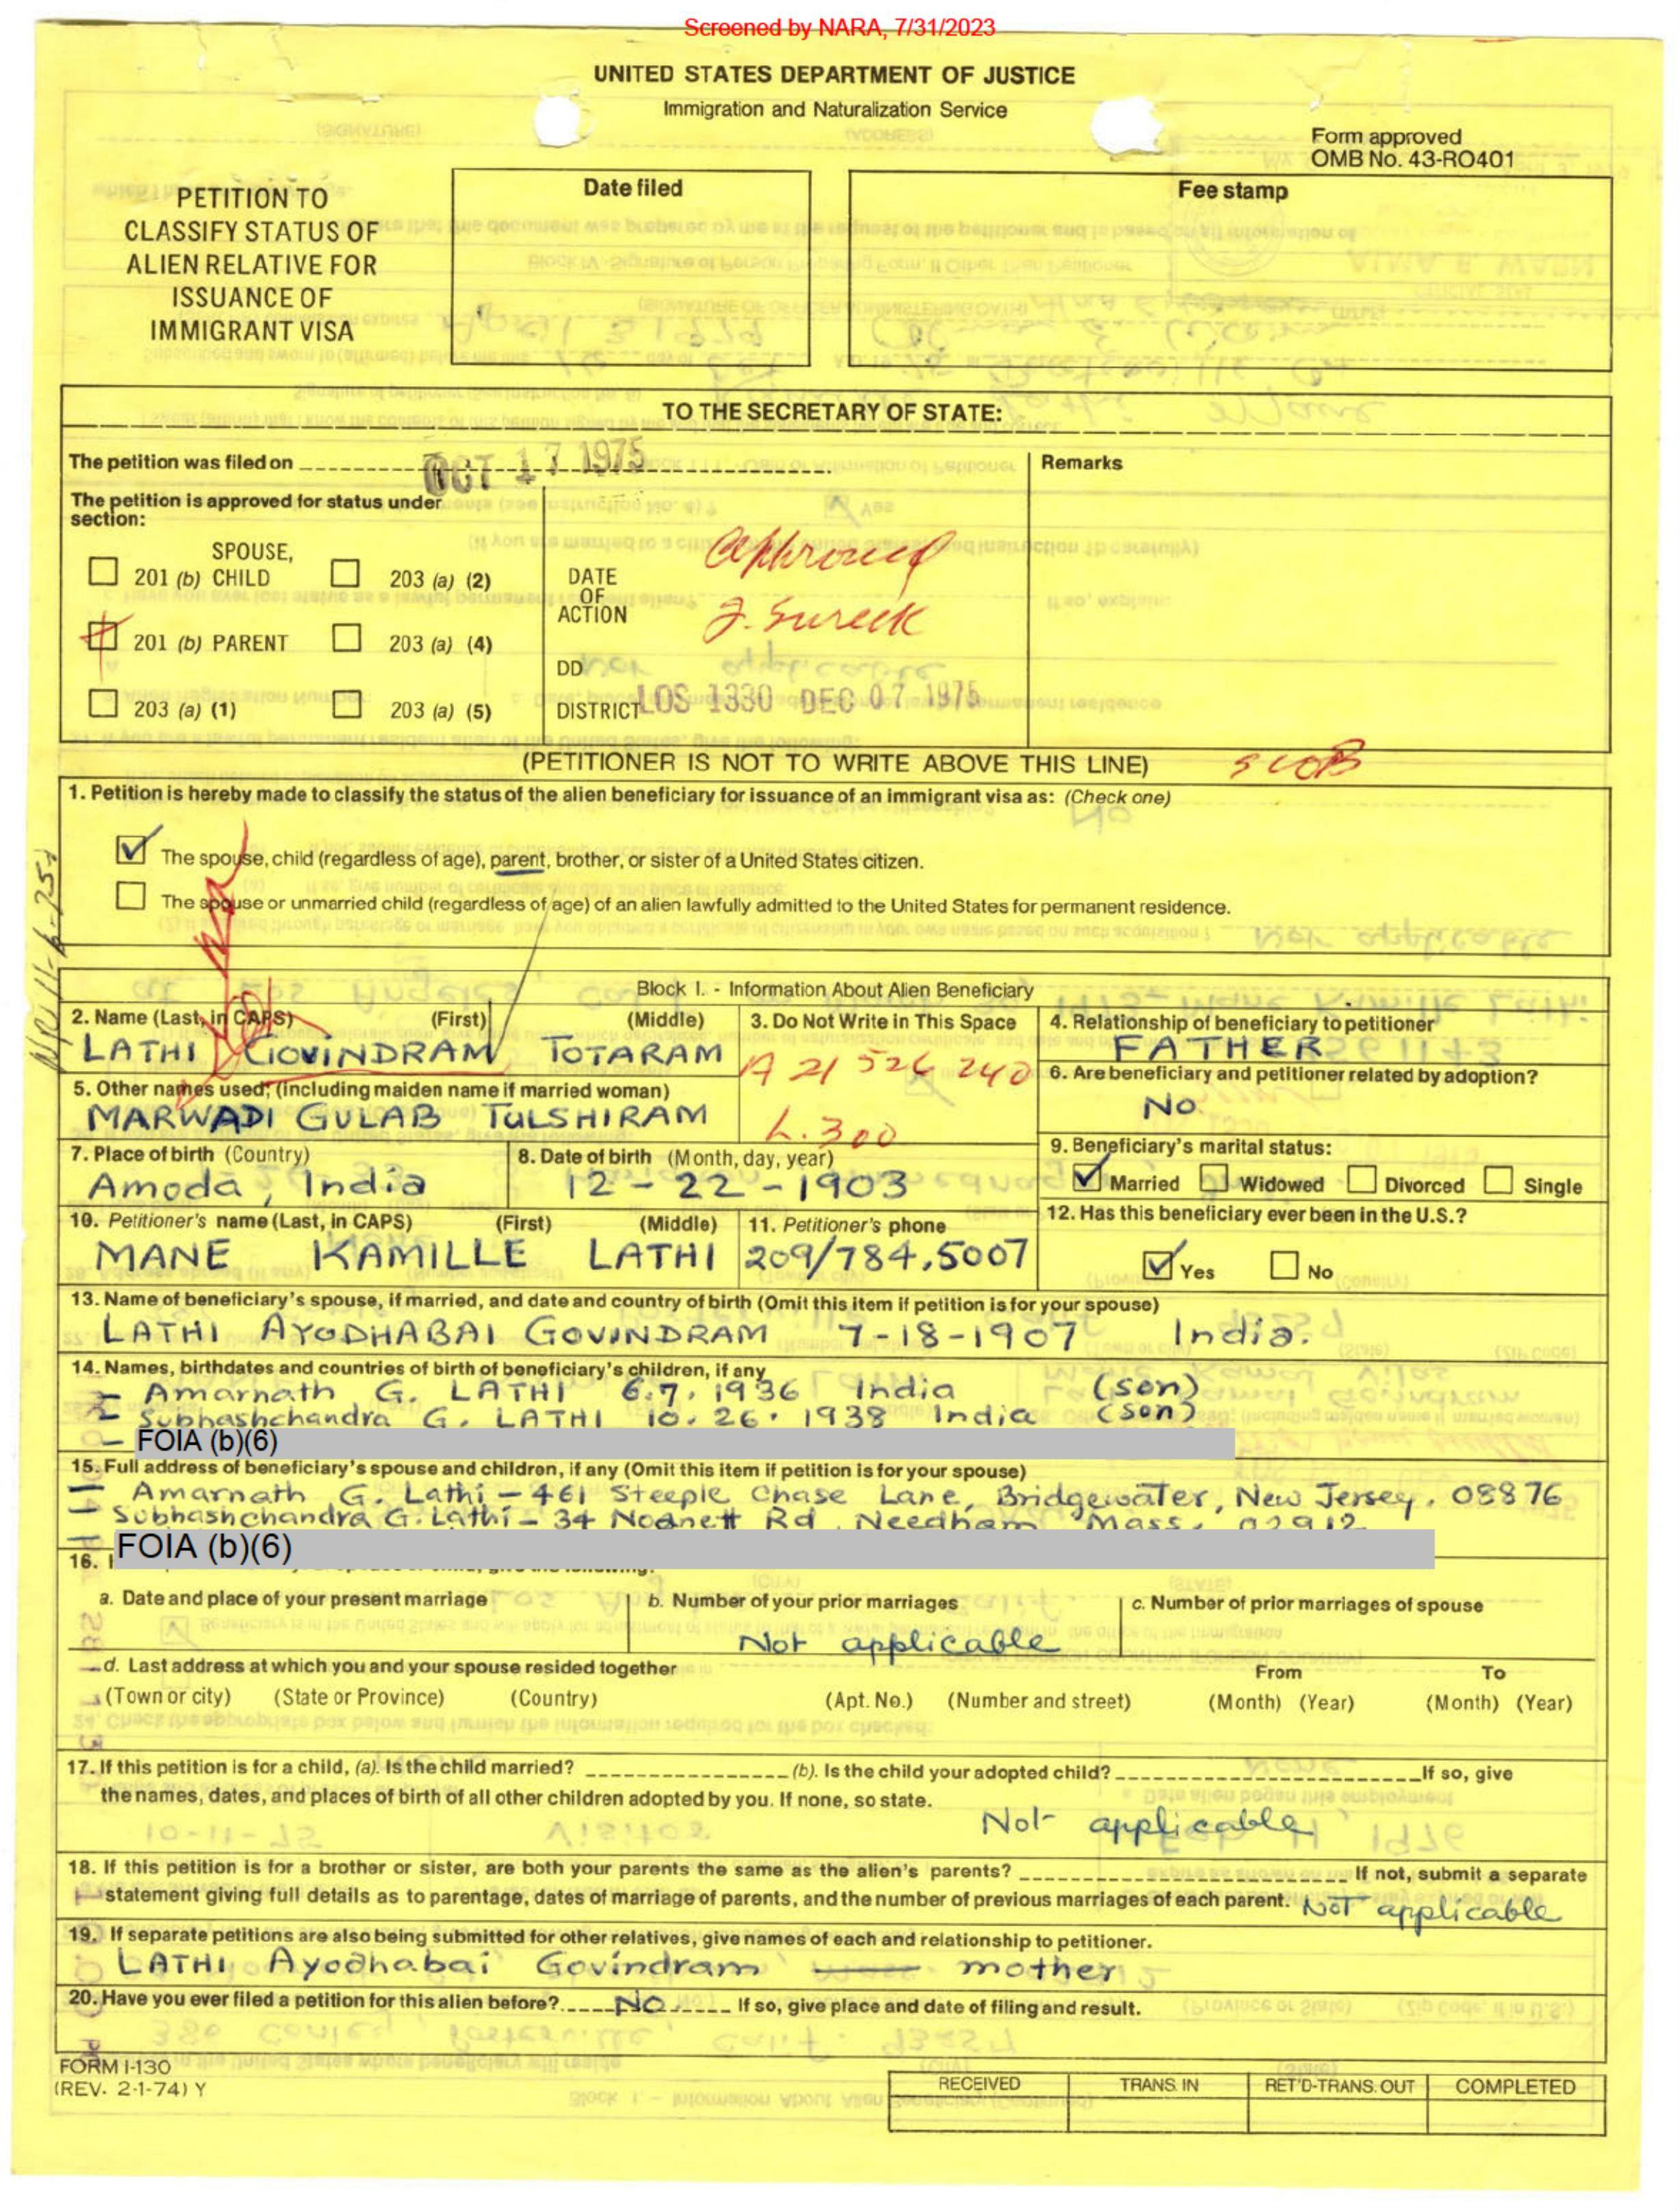 Screened by NARA, 7/31/2023
UNITED STATES DEPARTMENT OF JUSTICE
Immigration and Naturalization Service
Form approved
OMB No. 43-RO401
PETITION TO
CLASSIFY STATUS OF
ALIEN RELATIVE FOR
ISSUANCE OF
IMMIGRANT VISA
Date filed
Fee stamp
TO THE SECRETARY OF STATE:
The petition was filed on OCT 17 1975
Remarks
The petition is approved for status under
section:
SPOUSE,
201 (b) CHILD
203 (a) (2)
201 (b) PARENT
203 (a) (4)
203 (a) (1)
203 (a) (5)
DATE
OF
ACTION
Approved
J. Sureck
DD
DISTRICT LOS 1330 DEC 07 1975
(PETITIONER IS NOT TO WRITE ABOVE THIS LINE)
1. Petition is hereby made to classify the status of the alien beneficiary for issuance of an immigrant visa as: (Check one)
The spouse, child (regardless of age), parent, brother, or sister of a United States citizen.
The spouse or unmarried child (regardless of age) of an alien lawfully admitted to the United States for permanent residence.
Block I. - Information About Alien Beneficiary
2. Name (Last, in CAPS) (First) (Middle)
LATHI GOVINDRAM TOTARAM
3. Do Not Write in This Space
A 21 526 240
L.300
4. Relationship of beneficiary to petitioner
FATHER
5. Other names used; (including maiden name if married woman)
MARWADI GULAB TULSHIRAM
6. Are beneficiary and petitioner related by adoption?
No
7. Place of birth (Country)
Amoda, India
8. Date of birth (Month, day, year)
12-22-1903
9. Beneficiary's marital status:
Married Widowed Divorced Single
10. Petitioner's name (Last, in CAPS) (First) (Middle)
MANE KAMILLE LATHI
11. Petitioner's phone
209/784.5007
12. Has this beneficiary ever been in the U.S.?
Yes No
13. Name of beneficiary's spouse, if married, and date and country of birth (Omit this item if petition is for your spouse)
LATHI AYODHABAI GOVINDRAM 7-18-1907 India.
14. Names, birthdates and countries of birth of beneficiary's children, if any
Amarnath G. LATHI 6.7.1936 India (son)
Subhashchandra G. LATHI 10.26.1938 India (son)
FOIA (b)(6)
15. Full address of beneficiary's spouse and children, if any (Omit this item if petition is for your spouse)
Amarnath G. Lathi - 461 Steeple Chase Lane, Bridgewater, New Jersey. 08876
Subhashchandra G. Lathi - 34 Rd Needham Mass.
FOIA (b)(6)
16.
a. Date and place of your present marriage
b. Number of your prior marriages
c. Number of prior marriages of spouse
Not applicable
d. Last address at which you and your spouse resided together
From To
(Town or city) (State or Province) (Country) (Apt. No.) (Number and street) (Month) (Year) (Month) (Year)
17. If this petition is for a child, (a). Is the child married? (b). Is the child your adopted child? If so, give
the names, dates, and places of birth of all other children adopted by you. If none, so state.
Not applicable
18. If this petition is for a brother or sister, are both your parents the same as the alien's parents? If not, submit a separate
statement giving full details as to parentage, dates of marriage of parents, and the number of previous marriages of each parent. Not applicable
19. If separate petitions are also being submitted for other relatives, give names of each and relationship to petitioner.
LATHI Ayodhabai Govindram — mother
20. Have you ever filed a petition for this alien before? No If so, give place and date of filing and result.
FORM I-130
(REV. 2-1-74) Y
RECEIVED TRANS. IN RET'D-TRANS. OUT COMPLETED